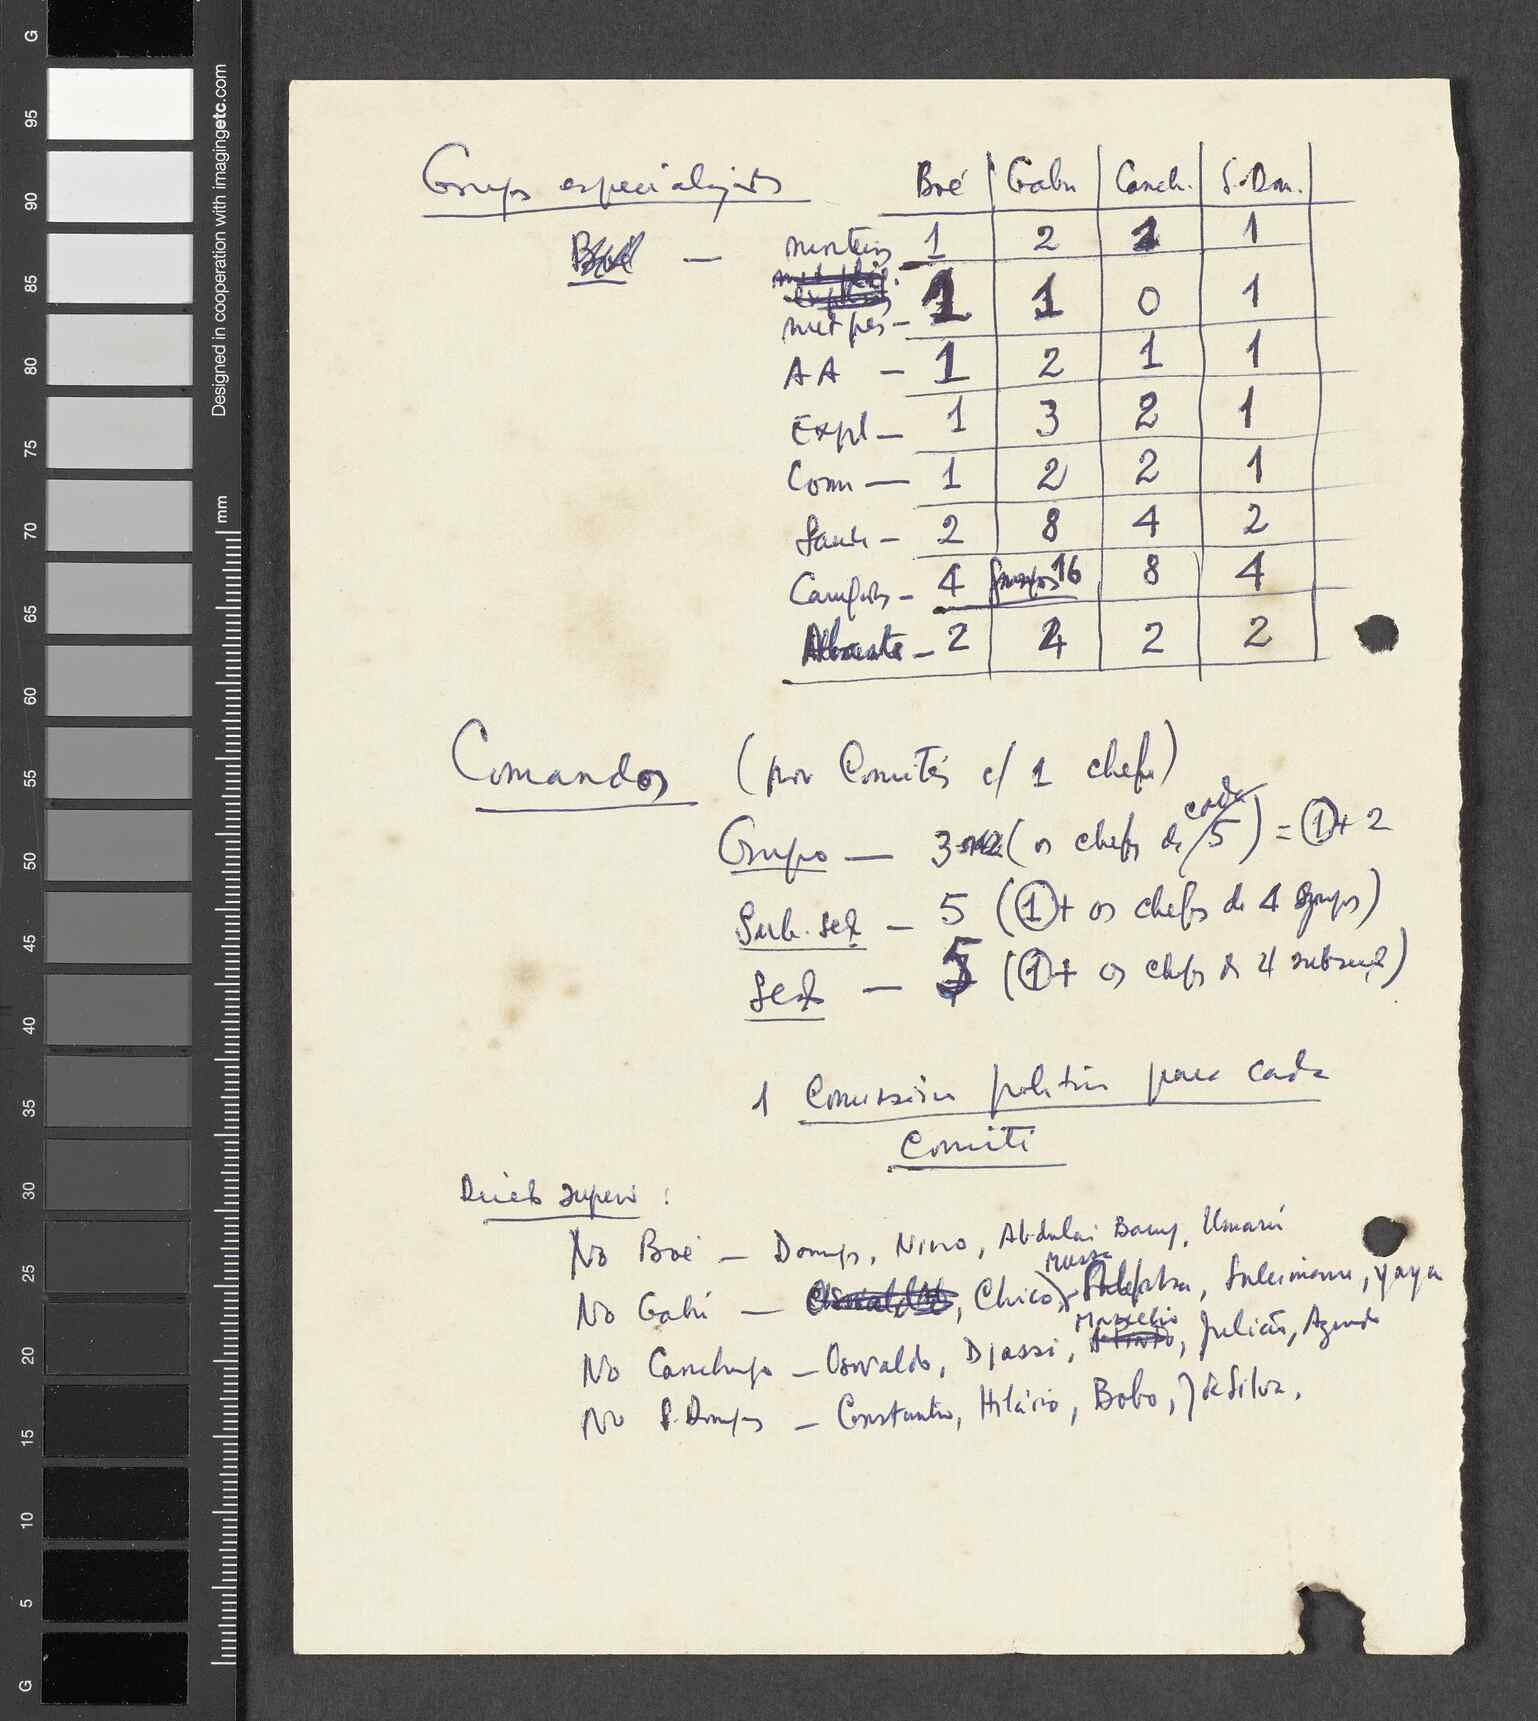 G
95
90
85
80
75
70
65
60
55
50
45
40
35
30
25
20
15
10
5
G
Designed in cooperation with imagingetc.com
mm
Grupos especializados Boé Gabu Canch. S. Dom.
Boé — morteiros 1 2 1 1
met pes — 1 1 0 1
AA — 1 2 1 1
Expl — 1 3 2 1
Com — 1 2 2 1
Saude — 2 8 4 2
Camponês — 4 grupos 16 8 4
2 4 2 2
Comandos (por Comités c/ 1 chefe)
Grupo — 3 (os chefes de cada 5) = 1 + 2
Sub. secç — 5 (1 + os chefes de 4 grupos)
Secç — 5 (1 + os chefes de 4 subsecç)
1 Comissário político para cada
Comité
superior :
No Boé — Domingos, Nino, Abdulai Barry, Umarú
No Gabú — Osvaldo, Chico, Mussa, Suleimane, Yaya
No Canchungo — Osvaldo, Djassi, Marcelino, Julião,
No S. Domingos — Constantino, Hilário, Bobo, J da Silva.